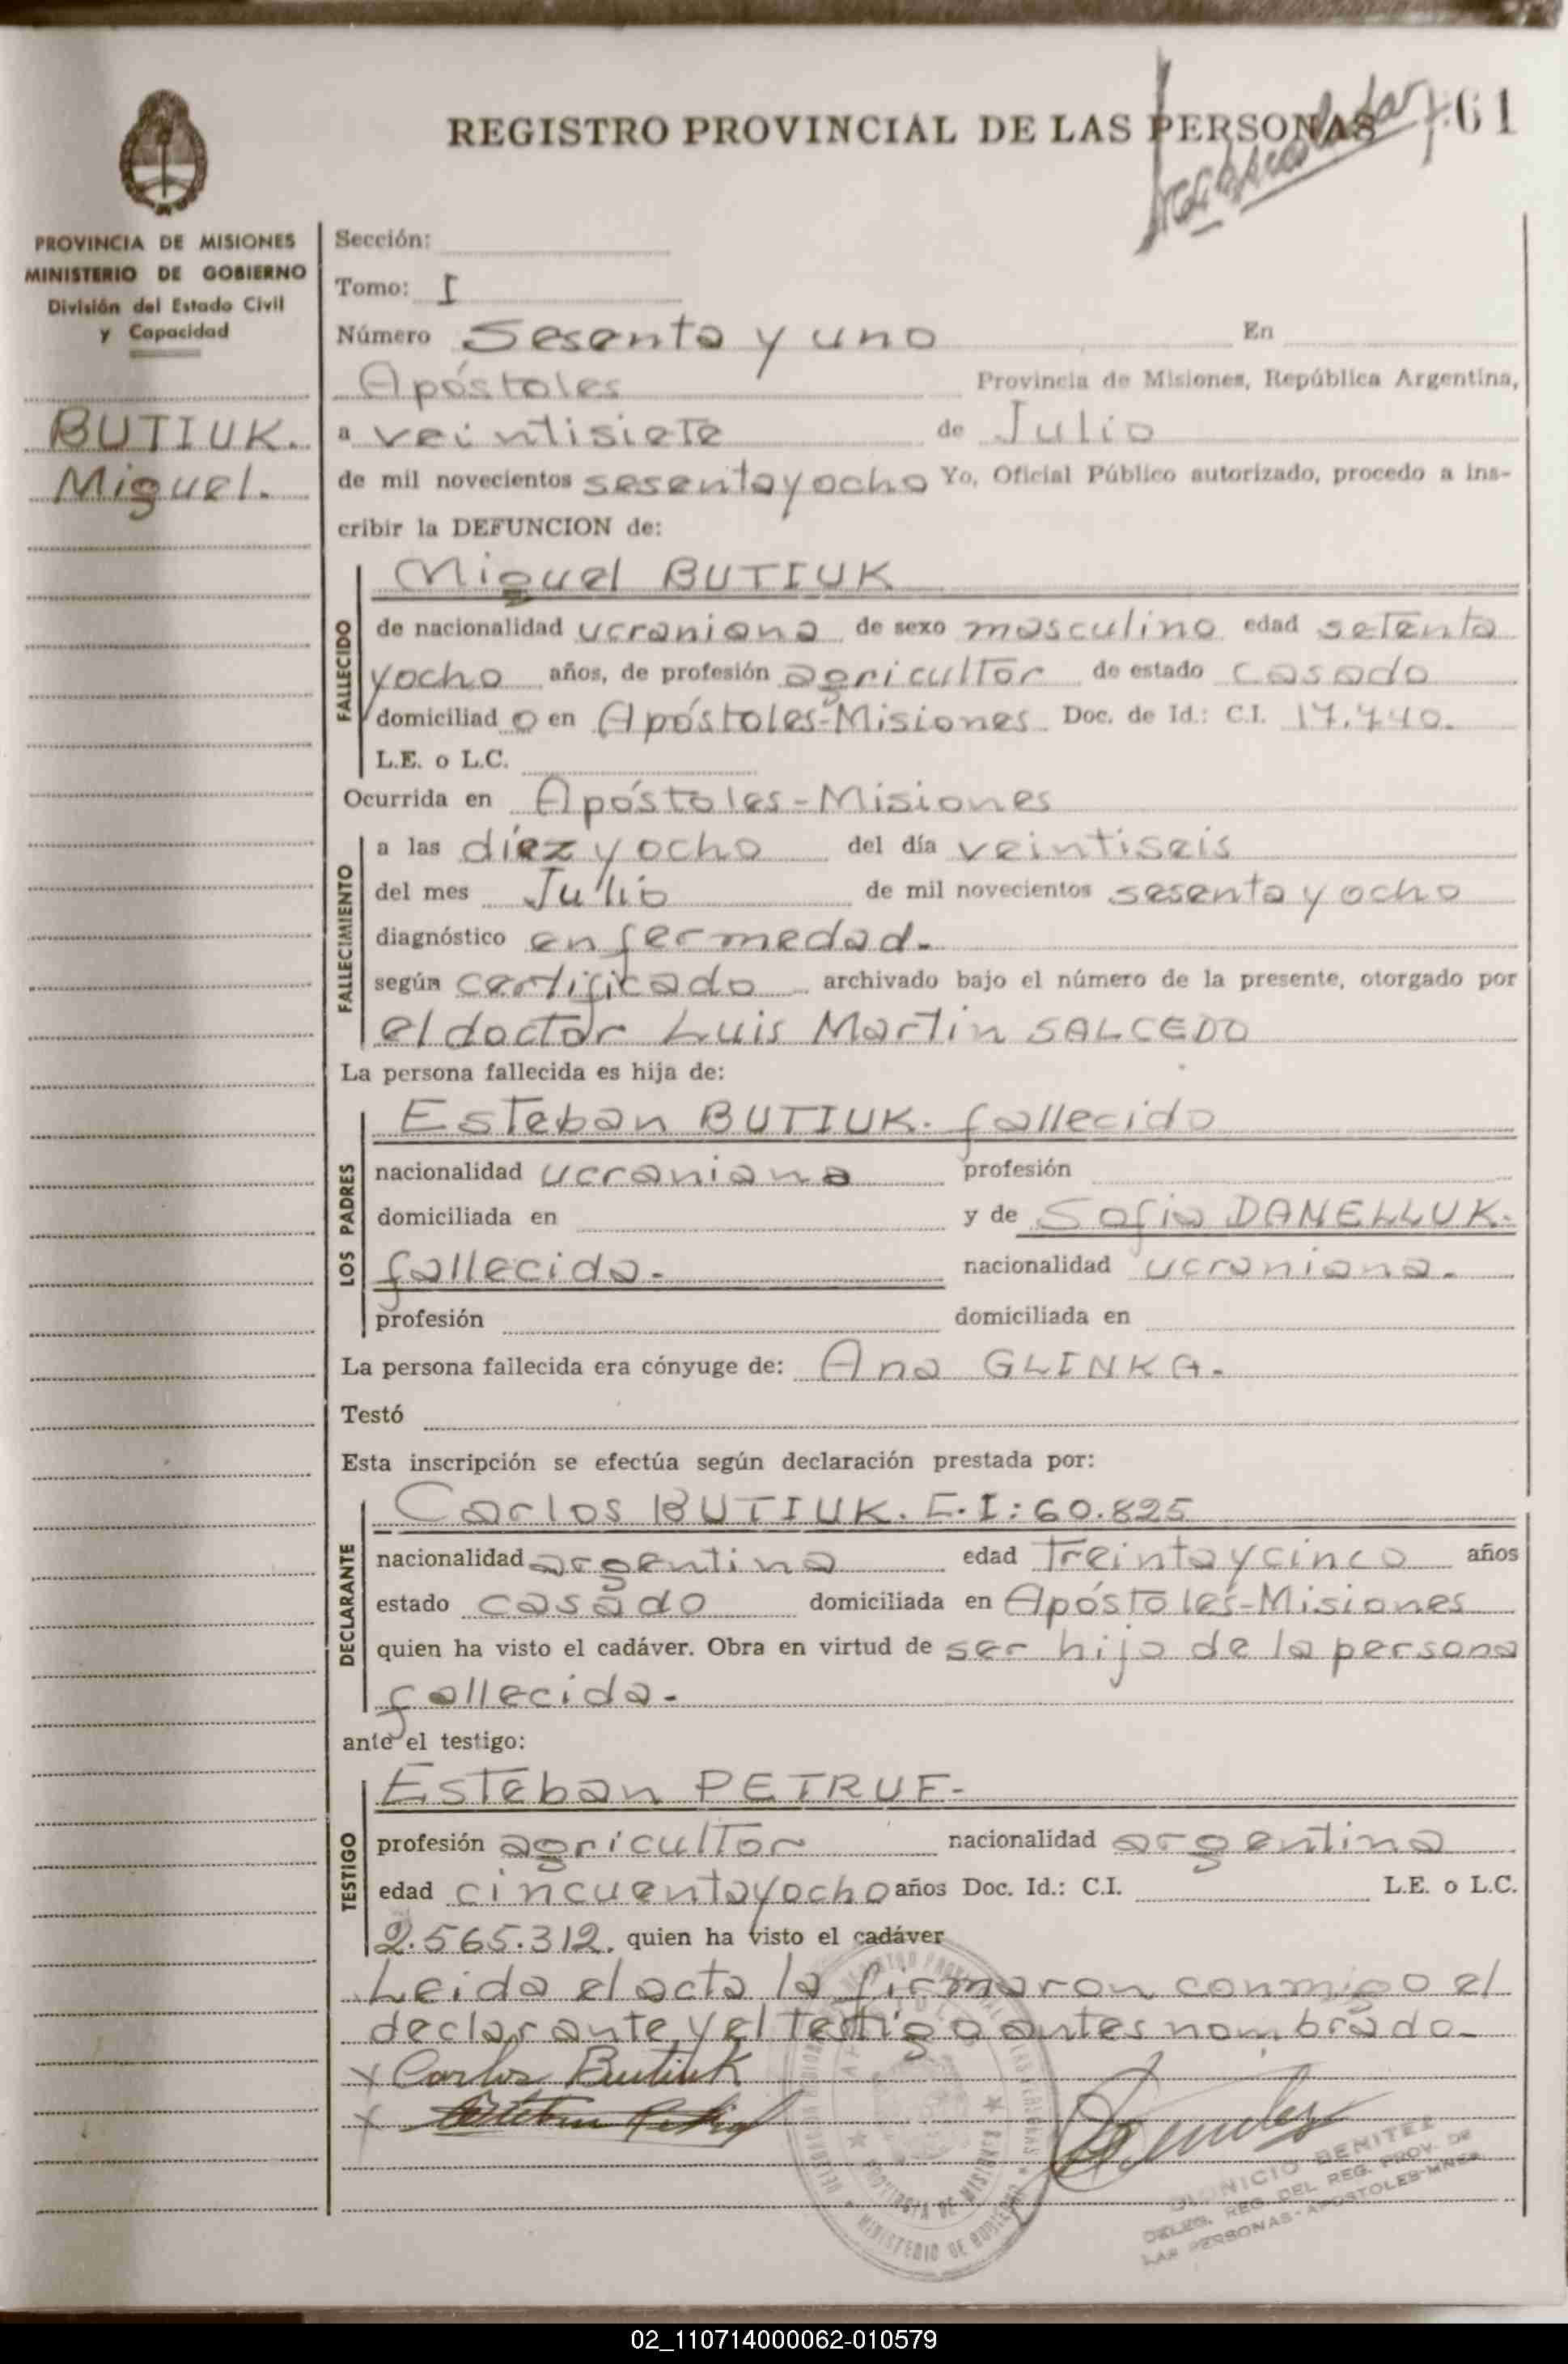 REGISTRO PROVINCIAL DE LAS PERSONAS
61
PROVINCIA DE MISIONES
MINISTERIO DE GOBIERNO
División del Estado Civil
y Capacidad
BUTIUK.
Miguel.
Sección:
Tomo: I
Número Sesenta y uno En
Apóstoles Provincia de Misiones, República Argentina,
a veintisiete de Julio
de mil novecientos sesenta y ocho Yo, Oficial Público autorizado, procedo a ins-
cribir la DEFUNCION de:
FALLECIDO
Miguel BUTIUK
de nacionalidad ucraniana de sexo masculino edad setenta
y ocho años, de profesión agricultor de estado casado
domiciliad o en Apóstoles-Misiones Doc. de Id.: C.I. 17.740.
L.E. o L.C.
Ocurrida en Apóstoles-Misiones
FALLECIMIENTO
a las díez y ocho del día veintiseis
del mes Julio de mil novecientos sesenta y ocho
diagnóstico enfermedad.
según certificado archivado bajo el número de la presente, otorgado por
el doctor Luis Martin SALCEDO
La persona fallecida es hija de:
LOS PADRES
Esteban BUTIUK. fallecido
nacionalidad ucraniana profesión
domiciliada en y de Sofia DANELLUK.
fallecida. nacionalidad ucraniana.
profesión domiciliada en
La persona fallecida era cónyuge de: Ana GLINKA.
Testó
Esta inscripción se efectúa según declaración prestada por:
DECLARANTE
Carlos BUTIUK. C.I: 60.825
nacionalidad argentina edad Treinta y cinco años
estado casado domiciliada en Apóstoles-Misiones
quien ha visto el cadáver. Obra en virtud de ser hijo de la persona
fallecida.
ante el testigo:
TESTIGO
Esteban PETRUF-
profesión agricultor nacionalidad argentina
edad cincuenta y ocho años Doc. Id.: C.I. L.E. o L.C.
2.565.312. quien ha visto el cadáver
Leida el acta la firmaron conmigo el
declarante y el testigo antes nombrado-
x Carlos Butiuk
x
PROVINCIA DE MISIONES
MINISTERIO DE GOBIERNO
DIONICIO BENITEZ
DELEG. REG. DEL REG. PROV. DE
LAS PERSONAS-APOSTOLES-MNES.
02_110714000062-010579